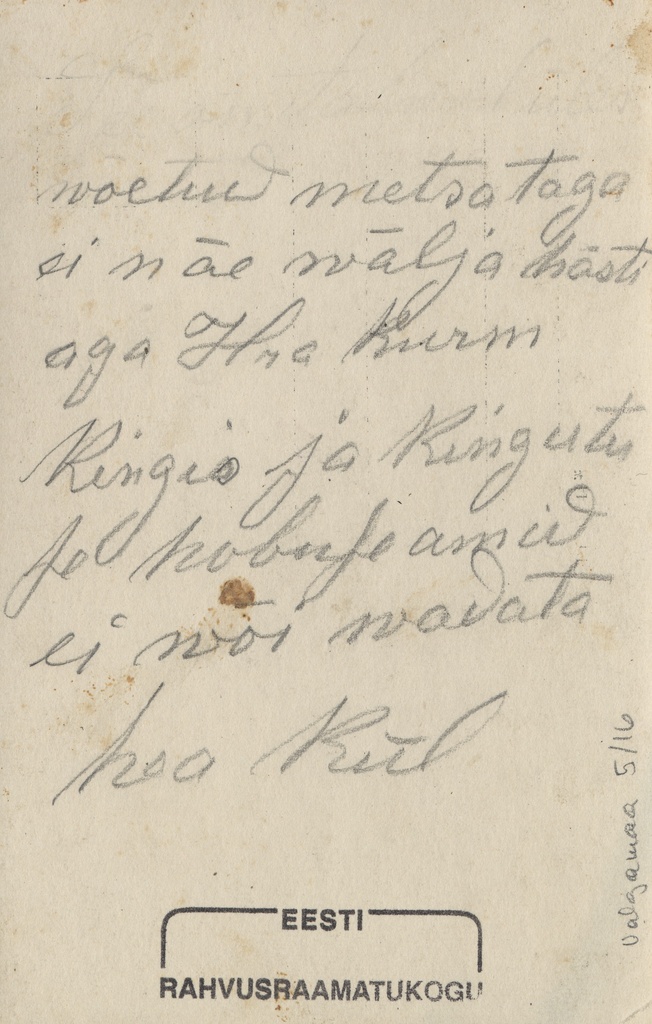 woetud metsa taga
ei näe wälja hästi
aga Hra Kurm
Kingis ja Kingutu
ja hobuse amid
ei wõi wadata
hra Kül
Valgamaa 5/16
EESTI
RAHVUSRAAMATUKOGU